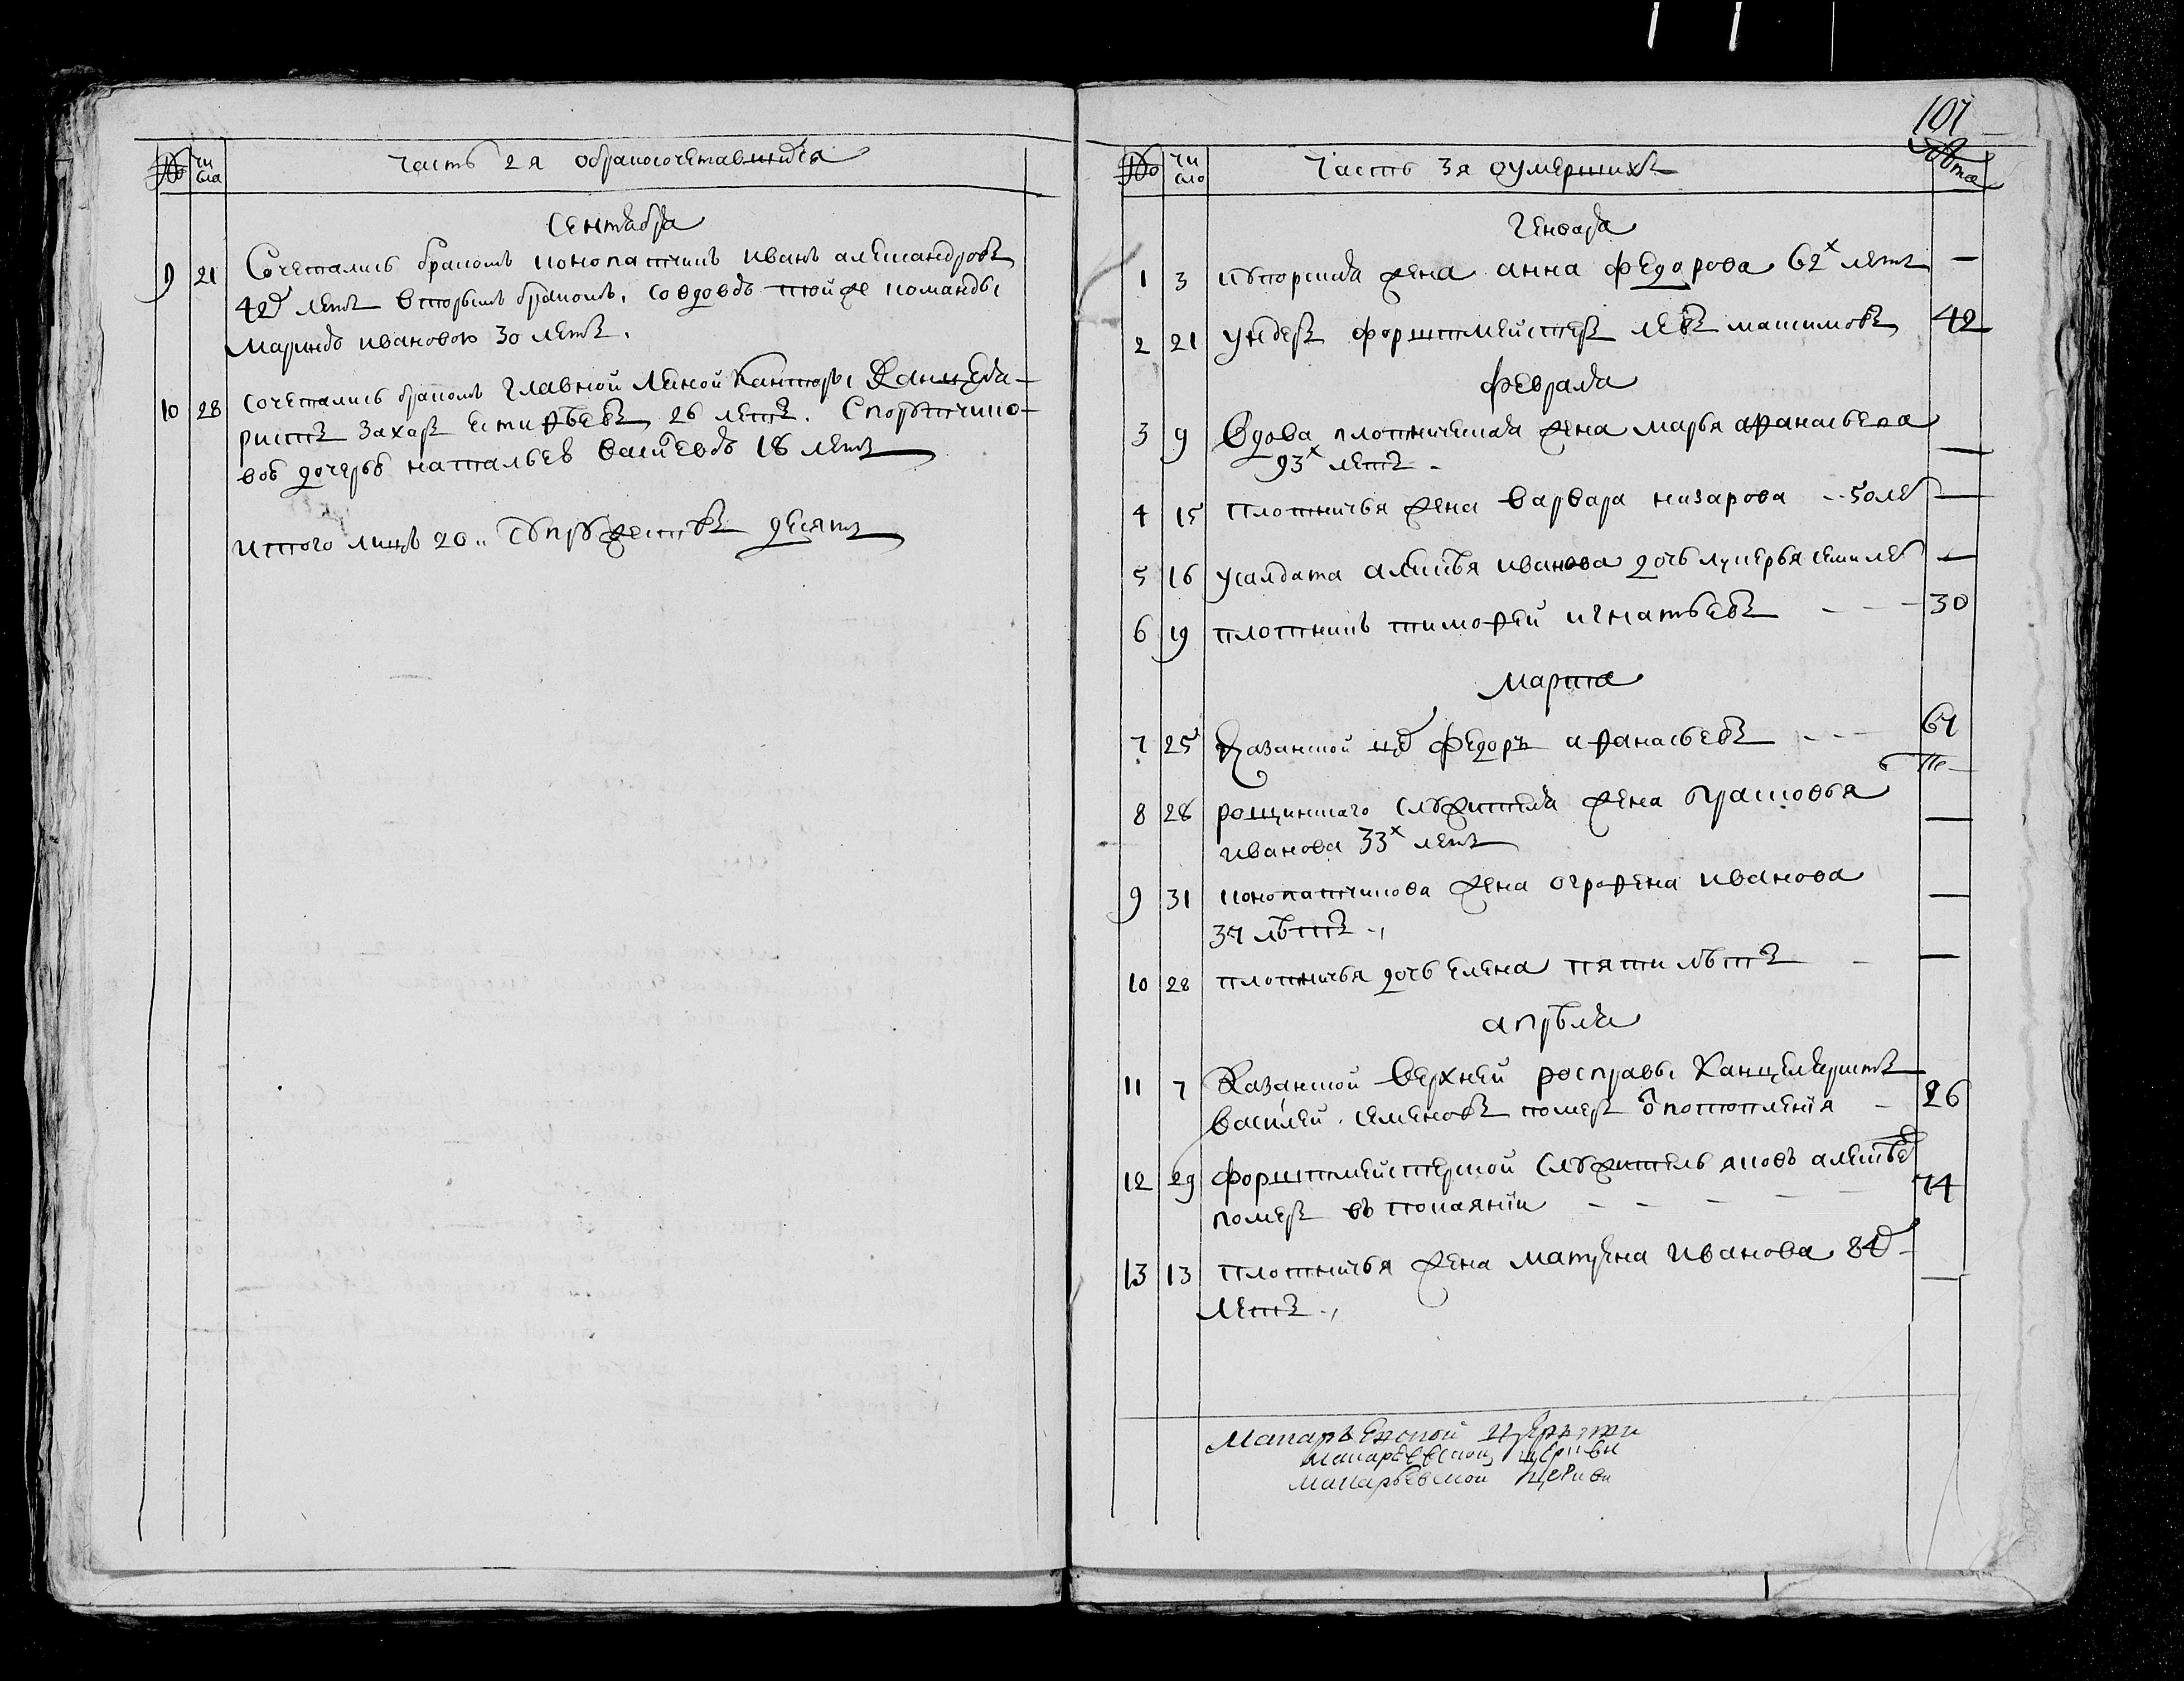 № чи сла Часть 2я обракосочетавшихся
Сентября
9 21 Сочетались бракомъ конопатчикъ иванъ александровъ
42х летъ вторымъ бракомъ, совдовою тойже команды
мариною ивановою 30 летъ.
10 28 сочетались бракомъ Главной Лесной канторы Канцеля-
ристъ Захаръ Евтифѣевъ 26 летъ. Спорутчико-
воѣ дочерью натальеѣ 18 летъ
итого лицъ 20.. супружествъ десять
107
№ чи сло Часть 3я оумершихъ лѣта
Генваря
1 3 жена анна федарова 62х летъ —
2 21 ундеръ форштмейстеръ левъ максимовъ 42
февраля
3 9 Вдова плотническая жена марья афанасьева
93х летъ - —
4 15 плотничья жена варвара назарова - - 50 ле —
5 16 усалдата алексѣя иванова дочь лукерья семи ле —
6 19 плотникъ тимофей игнатьевъ - - - 30
марта
7 25 Казанской федоръ афанасьевъ - - - 67
8 28 рощинскаго служителя жена прасковья
иванова 33х летъ —
9 31 конопатчикова жена огрофена иванова
37 лѣтъ - —
10 28 плотничья дочь елена пяти лѣтъ - —
апрѣля
11 7 Казанской верхней росправы Канцеляристъ
василей семеновъ померъ отпотопленїя - 26
12 29 форштмейстерской служитель яковъ алексѣе
померъ въ покаянїи - - - - - 74
13 13 плотничья жена матрена иванова 84
летъ - —
Макарьевской церкви
макарьевской церкви
макарьевской церкви